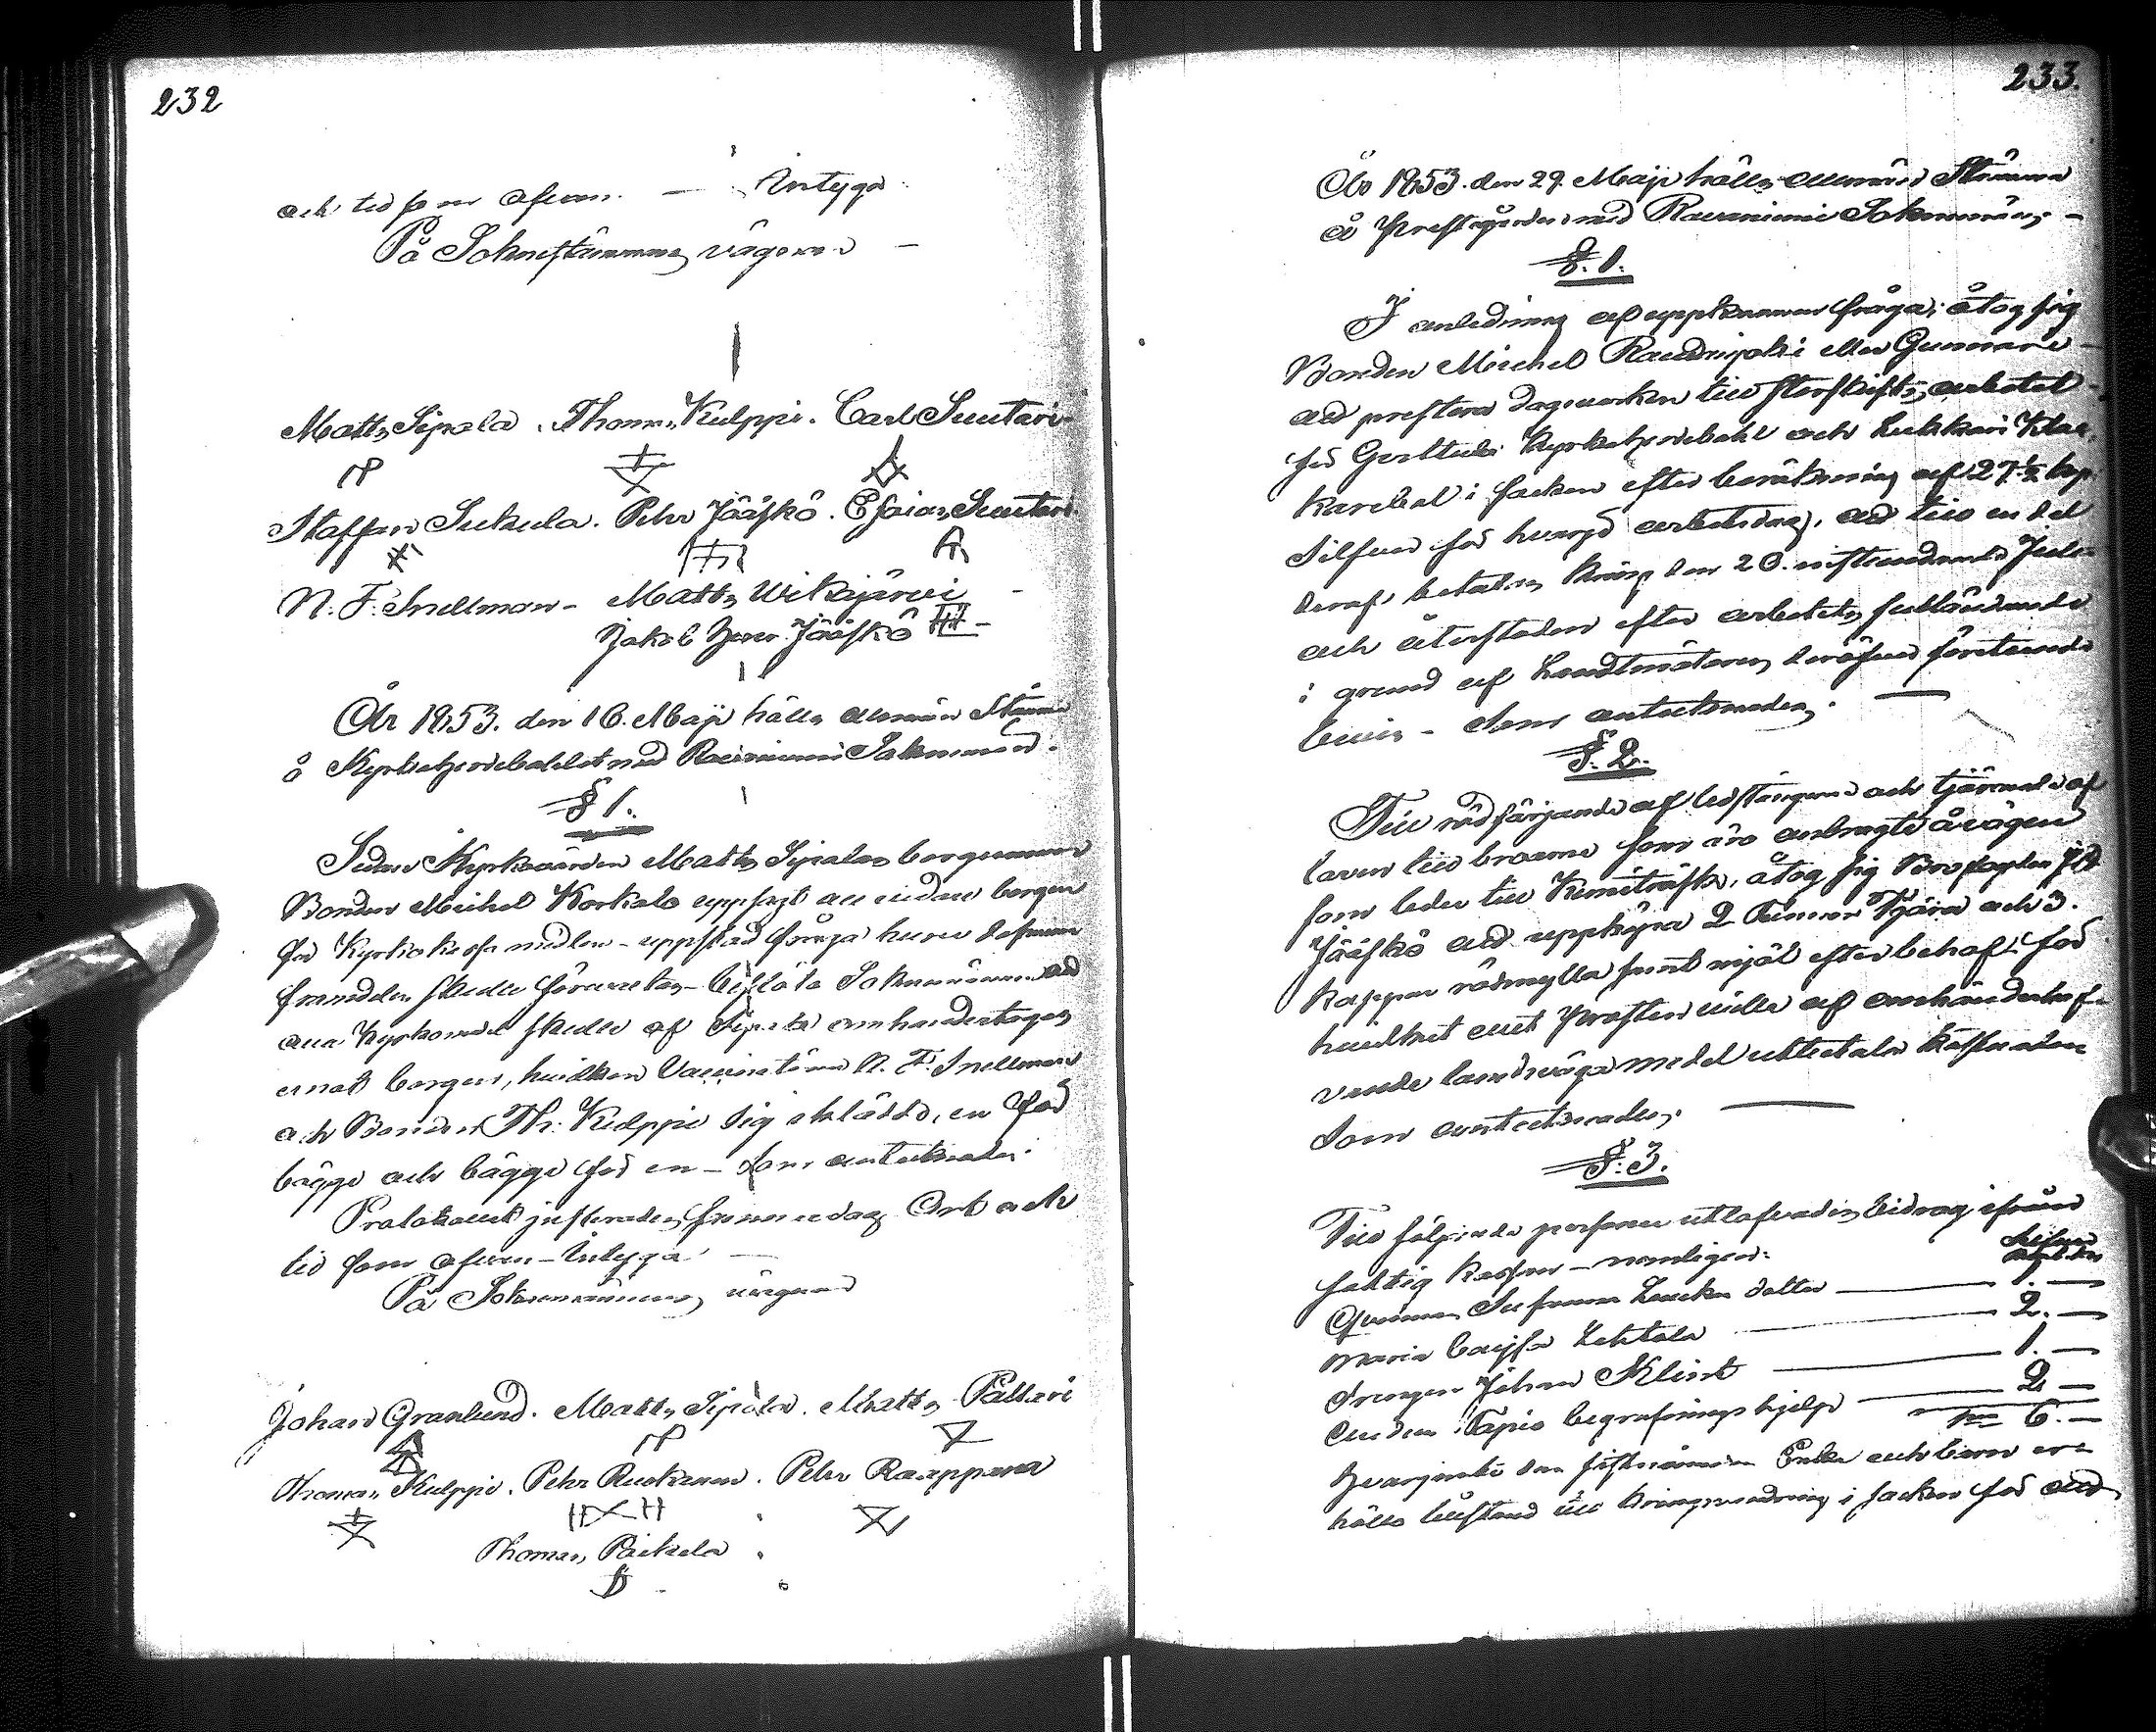 232
och tid som ofvan. — Intyga
På Soknestämmans vägnar —
Matts Sipola. Thomas Kulppi. Carl Suutari.
Staffan Sukula. Pehr Jääskö. Esaias Suutari.
N. F. Snellman – Matts Wikajärvi –
Jakob Jääskö –
År 1853. den 16. Maji hölls allmän Stämma
å Kyrkoherdebohlet med Rovaniemi Soknemän.
§ 1.
Sedan Kyrkovärden Matts Sipolas borgesman
Bonden Michel Korkalo uppsagt all vidare borgen
för Kyrkokassa medlen – uppstod fråga huru dermed
framdeles skulle förvaltas – beslöto Soknemännen att
alla Kyrkomedel skulle af Sipola omhändertagas
emot borgen, hvilken Vaccinatören N. F. Snellman
och Bonden Th: Kulppi sig iklädde, en för
bägge och bägge för en – som antecknades.
Protokollet justerades samma dag Ort och
tid som ofvan – Intyga —
På Soknemännens vägnar
Johan Granlund. Matts Sipola. Matts Pallari
Thomas Kulppi. Pehr Ruokanen. Pehr Raappana
Thomas Paikula
233.
År 1853. den 29. Maji hölls allmän Stämma
å Prestgården med Rovaniemi Soknemän. –
§. 1.
I anledning af uppkommen fråga, åtog sig
Bonden Michel Raudnijoki eller Gunnare –
att prestera dagsverken till storskiftes arbetet
för Kyrkoherdebohl och Lukkari
karebol i socken efter beräkning af 27 ½ kop
Silfver för hvarje arbetsdag, att till en del
deraf betalas den 20. nästkommande Julii
och återstoden efter arbetets fulländande
i grund af Landtmätarens deröfver företeende
bevis – som antecknades. —
§. 2.
Till rödfärjande af ledstängerne och tjärande af
laven till broarne som äro anbragte å vägen
som leder till Kemiträsk, åtog sig Brofogden
Jääskö att uppköpa 2 Tunnor Tjära och 3.
kappar rödmylla samt mjöl efter behof; för
hvilket allt Prosten ville af omhänderhaf-
vande landsvägamedel utbetala kostnaden
Som antecknades. —
§. 3.
Till följande personer utlofvades bidrag ifrån
fattig kassan – nemligen:
Qvinnan Susanna dotter — 1. —
Maria Cajsa Lehtola — 2. —
Drengen Johan Klint — 1. —
Tapio begrafnings hjelp — 2 —
6. —
Hvarjemte den sistnämndes Enka och barn er-
höllo tillstånd till kringvandring i socken för att